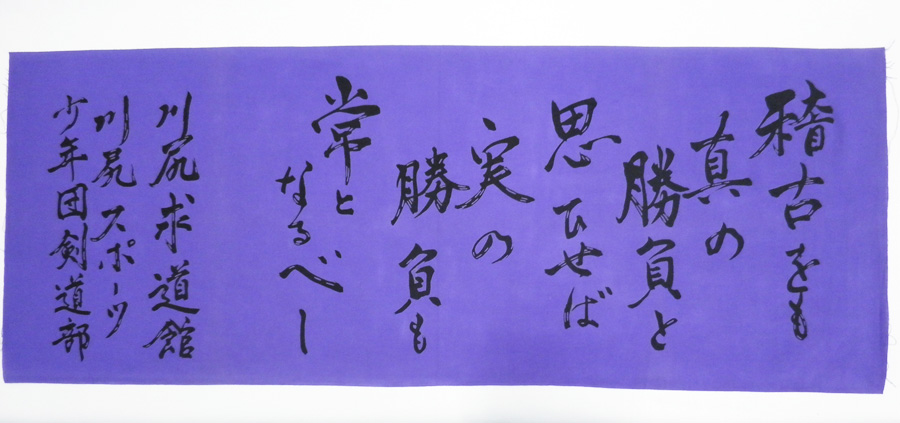 稽古をも
真の
勝負と
思ひせば
実の
勝負も
常と
なるべし
川尻求道館
川尻スポーツ
少年団剣道部